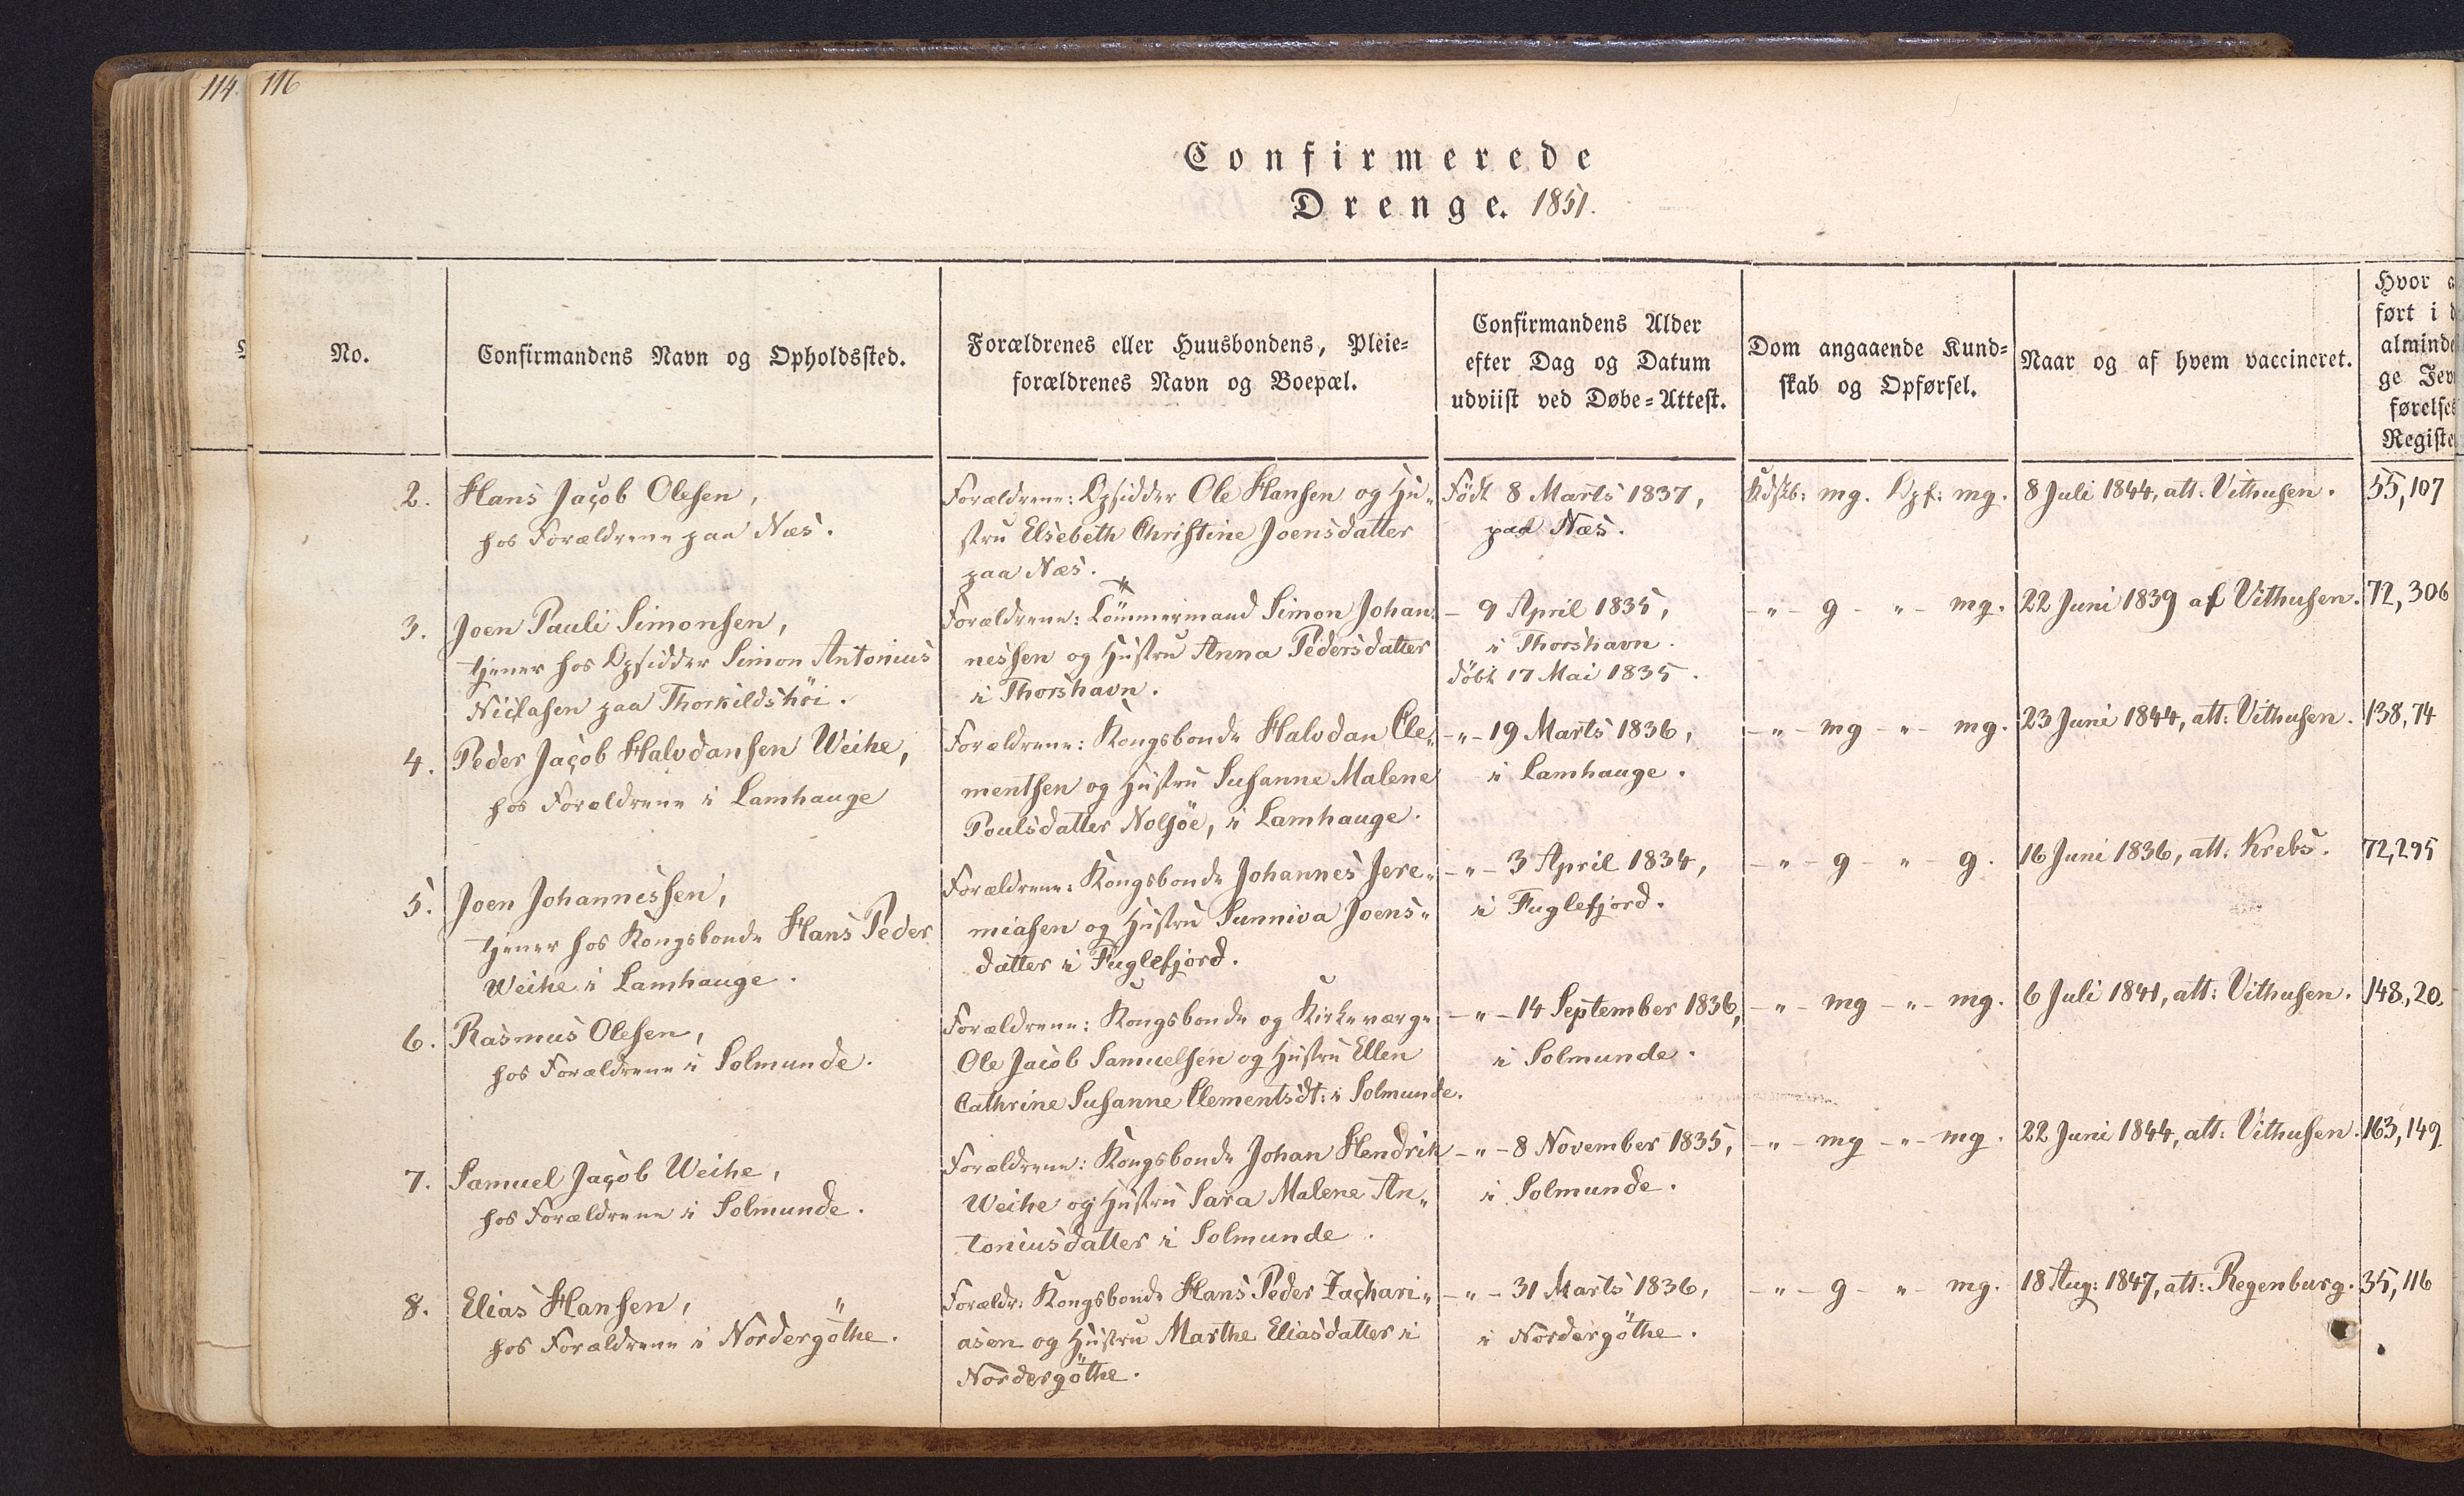 114. 116
Confirmerede
Drenge. 1851.
No.
Confirmandens Navn og Opholdssted.
Forældrenes eller Huusbondens, Pleie-
forældrenes Navn og Boepæl.
Confirmandens Alder
efter Dag og Datum
udviist ved Døbe-Attest.
Dom angaaende Kund-
skab og Opførsel.
Naar og af hvem vaccineret.
Hvor a
ført i d
alminde
ge Jev
førelses
Registe
2.
Hans Jacob Olesen,
hos Forældrene paa Næs.
Forældrene: Opsidder Ole Hansen og Hu-
stru Elsebeth Christine Joensdatter
paa Næs.
Født 8 Marts 1837,
paa Næs.
Kdskb: mg. Opf: mg.
8 Juli 1844, att: Vithusen.
55,107
3.
Joen Pauli Simonsen,
tjener hos Opsidder Simon Antonius
Niclasen paa Thorkildshöi.
Forældrene: Tömmermand Simon Johan-
nessen og Hustru Anna Pedersdatter
i Thorshavn.
- 9 April 1835,
i Thorshavn.
döbt 17 Mai 1835.
-"- g -"- mg.
22 Juni 1839 af Vithusen.
72,306
4.
Peder Jacob Halvdansen Weihe,
hos Forældrene i Lamhauge
Forældrene: Kongsbonde Halvdan Cle-
mentsen og Hustru Susanne Malene
Poulsdatter Nolsöe, i Lamhauge.
-"- 19 Marts 1836,
i Lamhauge.
-"- mg -"- mg.
23 Juni 1844, att: Vithusen.
138,74
5.
Joen Johannessen,
tjener hos Kongsbonde Hans Peder
Weihe i Lamhauge.
Forældrene: Kongsbonde Johannes Jere-
miasen og Hustru Sunniva Joens-
datter i Fuglefjord.
-"- 3 April 1834,
i Fuglefjord.
-"- g -"- g.
16 Juni 1836, att: Krebs.
72,295
6.
Rasmus Olesen,
hos Forældrene i Solmunde.
Forældrene: Kongsbonde og Kirkeværge
Ole Jacob Samuelsen og Hustru Ellen
Cathrine Susanne Clementsdt: i Solmunde.
-"- 14 September 1836,
i Solmunde.
-"- mg -"- mg.
6 Juli 1841, att: Vithusen.
148,20.
7.
Samuel Jacob Weihe,
hos Forældrene i Solmunde.
Forældrene: Kongsbonde Johan Hendrik
Weihe og Hustru Sara Malene An-
toniusdatter i Solmunde.
-"- 8 November 1835,
i Solmunde.
-"- mg -"- mg.
22 Juni 1844, att: Vithusen.
163,149.
8.
Elias Hansen,
hos Forældrene i Nordergöthe.
Forældr: Kongsbonde Hans Peder Zachari-
asen og Hustru Marthe Eliasdatter i
Nordergöthe.
-"- 31 Marts 1836,
i Nordergöthe.
-"- g -"- mg.
18 Aug: 1847, att: Regenburg.
35,116